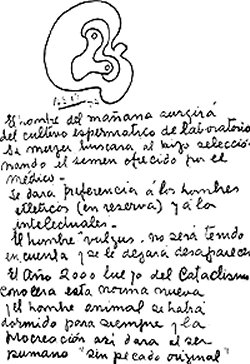 El hombre del mañana surgirá
del cultivo espermatico de laboratorio
La mujer buscara al hijo seleccio
nando el semen ofrecido por el
médico-
Se dara preferencia á los hombres
atleticos (en reserva) y á los
intelectuales-
El hombre vulgus, no será tenido
en cuenta y se le dejará desaparecer
El Año 2000 luego del Cataclismo
conocera esta norma nueva
y el hombre animal se habrá
dormido para siempre y la
procreación asi dara el ser
humano "sin pecado original"